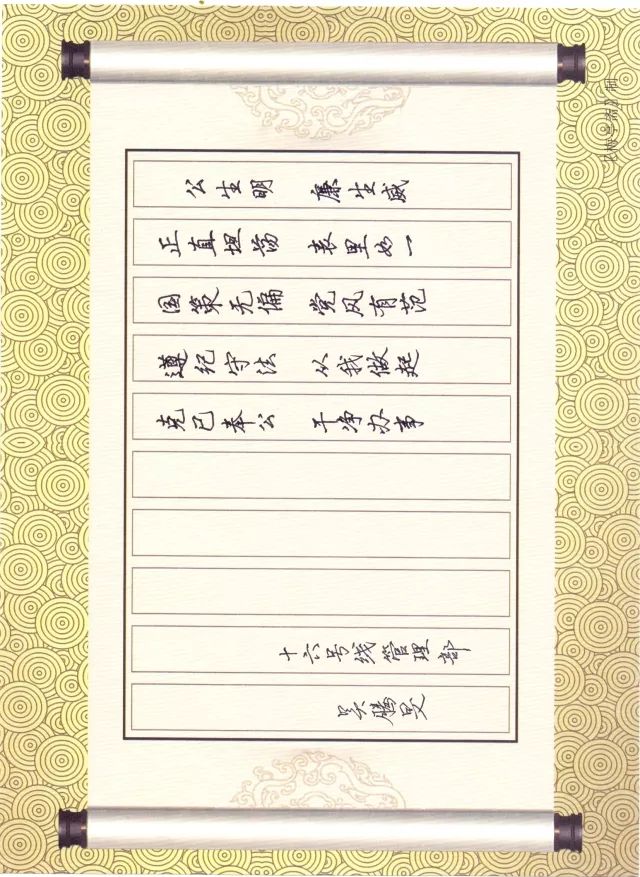 公生明 廉生威
正直坦荡 表里如一
国策无偏 党风有范
遵纪守法 从我做起
克己奉公 干净办事
十六号线管理部
吴腾旻